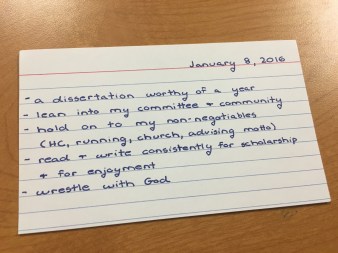 January 8, 2016
- a dissertation worthy of a year
- lean into my committee + community
- hold on to my non-negotiables
(HC, running, church, advising motto)
- read + write consistently for scholarship
+ for enjoyment
- wrestle with God